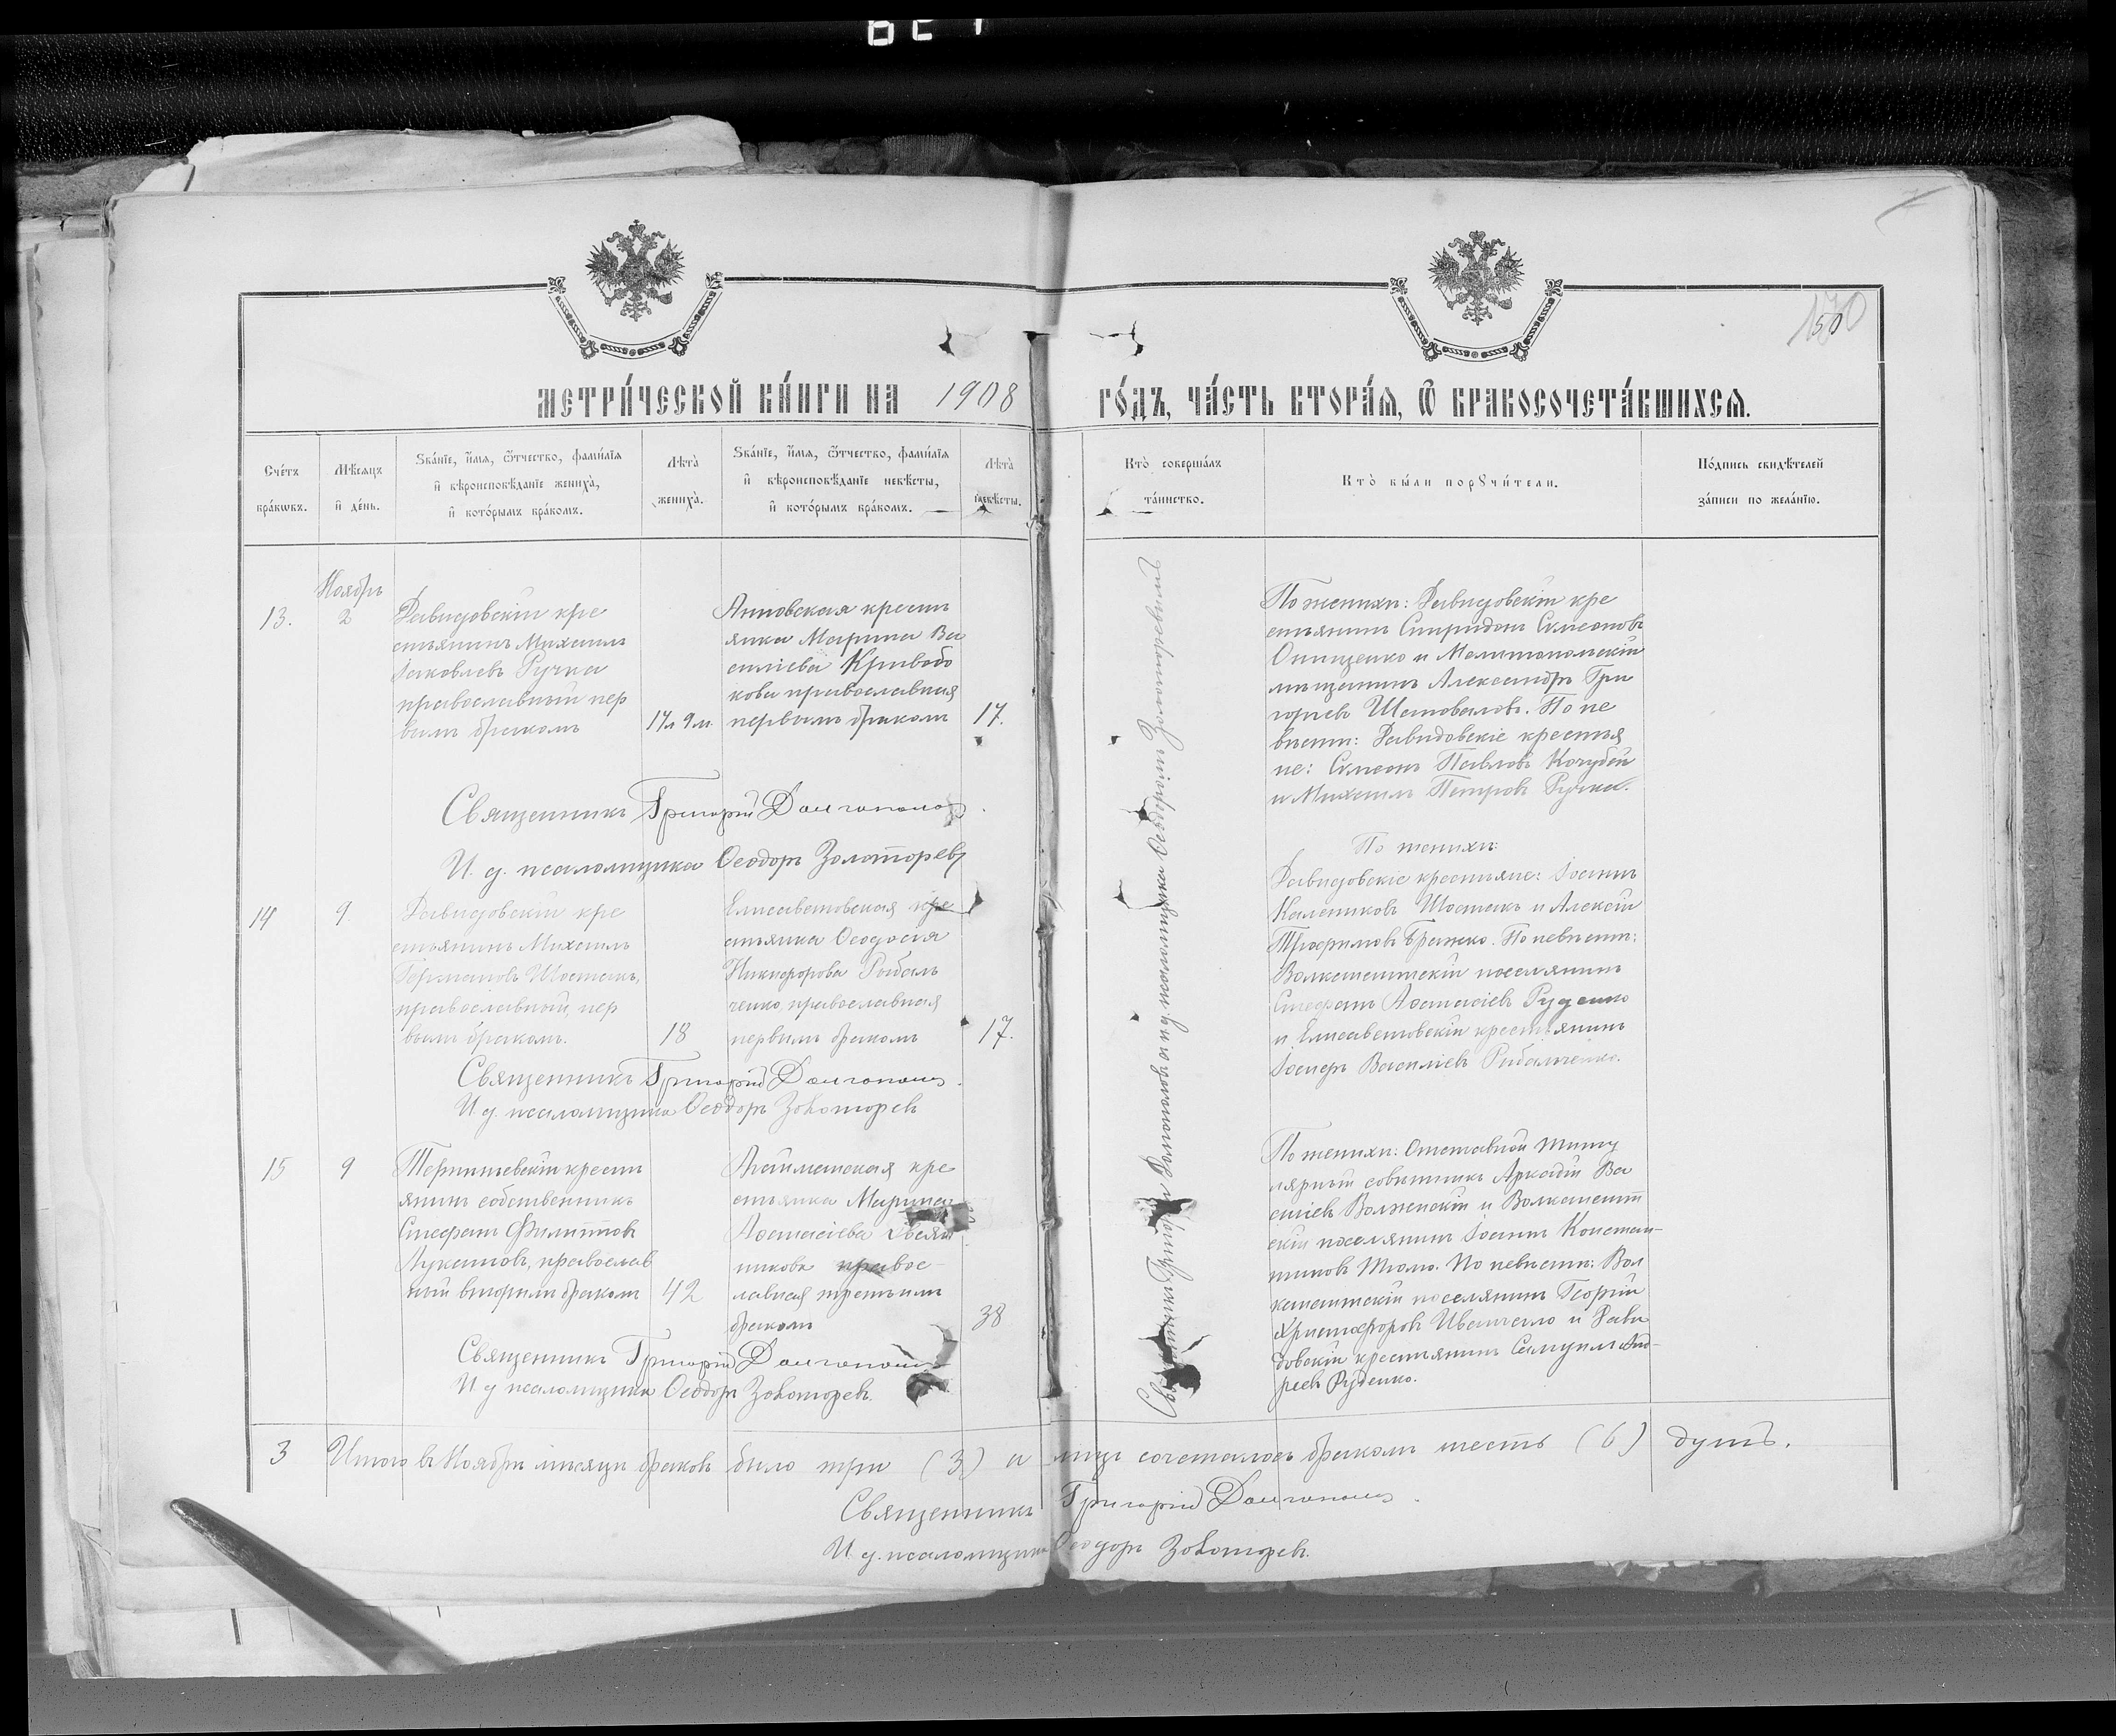 170
50
МЕТРИ́ЧЕСКОЙ КНИ́ГИ НА 1908 ГО́ДЪ, ЧА́СТЬ ВТОРА́Ѧ, Ѽ БРАКОСОЧЕТА́ВШИХСѦ.
Сче́тъ бра́кѡвъ.
Мѣ́сяцъ и де́нь.
Ѕва́нїе, и҆́мѧ, ѻ҆́тчество, фами́лїѧ
и҆ вѣроисповѣ́данїе жениха̀,
и҆ кото́рымъ бра́комъ.
Лѣта̀ жениха̀.
Ѕва́нїе, и҆́мѧ, ѻ҆́тчество, фами́лїѧ
и҆ вѣроисповѣ́данїе невѣ́сты,
и҆ кото́рымъ бра́комъ.
Лѣта̀ невѣ́сты.
Кто̀ соверша́лъ
та́инство.
Кто̀ бы́ли порꙋчи́тели.
По́дпись свидѣ́телей
за́писи по жела́нїю.
Ноябрь
13.
2
Давидовскій кре
стьянинъ Михаилъ
Іаковлевъ Ручка
православный пер
вымъ бракомъ
17л 9м.
Анновская крест
янка Марина Ва
силіева Кривобо
кова православная
первымъ бракомъ
17.
По женихѣ: Давидовскій кре
стьянинъ Спиридонъ Симеоновъ
Онищенко и Мелитопольскій
мѣщанинъ Александръ Гри
горьевъ Шаповаловъ. По не
вѣстѣ: Давидовскіе крестья
не: Симеонъ Павловъ Кочубей
и Михаилъ Петровъ Ручка.
Священникъ Григорій Долгополовъ.
И. д. псаломщика Ѳеодоръ Золоторевъ
14
9.
Давидовскій кре
стьянинъ Михаилъ
Германовъ Шостакъ,
православный, пер
вымъ бракомъ.
18
Елисаветовская кре
стьянка Ѳеодосія
Никифорова Рыбаль
ченко, православная
первымъ бракомъ
17.
По женихѣ:
Давидовскіе крестьяне: Іоаннъ
Калениковъ Шостакъ и Алексій
Трофимовъ Бражко. По невѣстѣ:
Волканештскій поселянинъ
Стефанъ Аѳанасіевъ Руденко
и Елисаветовскій крестьянинъ
Іосифъ Василіевъ Рибальченко.
Священникъ Григорій Долгополовъ.
И д. псаломщика Ѳеодоръ Золоторевъ
15
9
крест
янинъ собственникъ
Стефанъ Филипповъ
Лукьяновъ, православ
ный вторымъ бракомъ
42
кре
стьянка Марина
Аѳанасіева
никова правос-
лавная третьимъ
бракомъ
38
По женихѣ: Отставной титу
лярный совѣтникъ Аркадій Ва
силіевъ Волжскій и Волканешт
скій поселянинъ Іоаннъ Констан-
тиновъ Тюлю. По невѣстѣ: Вол
канештскій поселянинъ Георгій
Христофоровъ и Дави
довскій крестьянинъ Самуилъ Анд-
реевъ Руденко.
Священникъ Григорій Долгополовъ
И д псаломщика Ѳеодоръ Золоторевъ.
Священникъ Григорій Долгополовъ и и. д. псаломщика Ѳеодоръ Золоторевъ
3 Итого въ Ноябрѣ мѣсяцѣ браковъ было три (3) а лицъ сочеталось бракомъ шесть (6) душъ.
Священникъ Григорій Долгополовъ.
И. д. псаломщика Ѳеодоръ Золоторевъ.